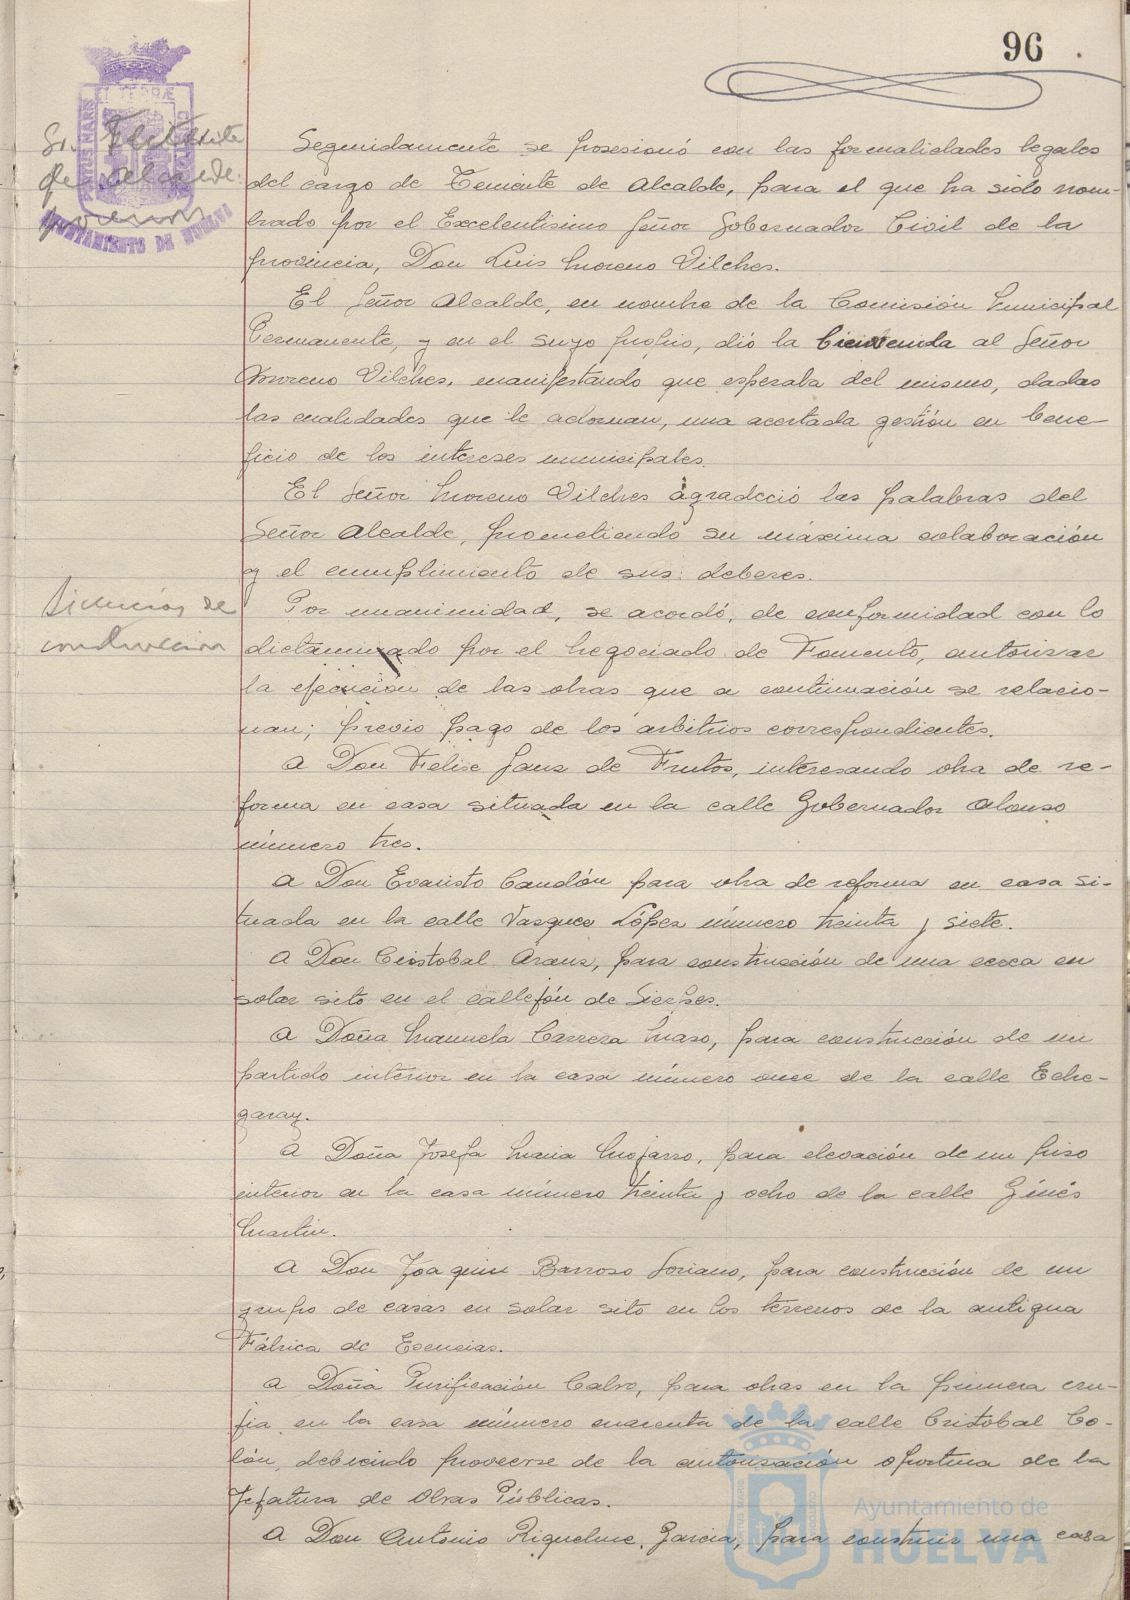 96
Sr. Teniente
de Alcalde.
Seguidamente se posesionó con las formalidades legales
del cargo de Teniente de Alcalde, para el que ha sido nom-
brado por el Excelentisimo Señor Gobernador Civil de la
provincia, Don Luis Moreno Vilches.
El Señor Alcalde, en nombre de la Comisión Municipal
Permanente, y en el suyo propio, dió la bienvenida al Señor
Moreno Vilches, manifestando que esperaba del mismo, dadas
las cualidades que le adornan, una acertada gestión en bene-
ficio de los intereses municipales.
El Señor Moreno Vilches agradeció las palabras del
Señor Alcalde, prometiendo su máxima colaboración
y el cumplimiento de sus deberes.
Licencias de
construcción
Por unanimidad, se acordó, de conformidad con lo
dictaminado por el Negociado de Fomento, autorizar
la ejecución de las obras que a continuación se relacio-
nan; previo pago de los arbitrios correspondientes.
A Don Felise Sanz de Frutos, interesando obra de re-
forma en casa situada en la calle Gobernador Alonso
número tres.
A Don Evaristo Candón para obra de reforma en casa si-
tuada en la calle Vazquez López número treinta y siete.
A Don Cristobal Aranz, para construcción de una cerca en
solar sito en el callejón de Sierpes.
A Doña Manuela Carrera Maso, para construcción de un
partido interior en la casa número once de la calle Eche-
garay.
A Doña Josefa Maria Mojarro, para elevación de un piso
interior en la casa número treinta y ocho de la calle Ginés
Martin.
A Don Joaquin Barroso Soriano, para construcción de un
grupo de casas en solar sito en los terrenos de la antigua
Fábrica de Esencias.
A Doña Purificación Calvo, para obras en la primera cru-
jia en la casa número cuarenta de la calle Cristobal Co-
lón, debiendo proveerse de la autorización oportuna de la
Jefatura de Obras Públicas.
A Don Antonio Riquelme Garcia, para construir una casa
AYUNTAMIENTO DE HUELVA
Ayuntamiento de
HUELVA